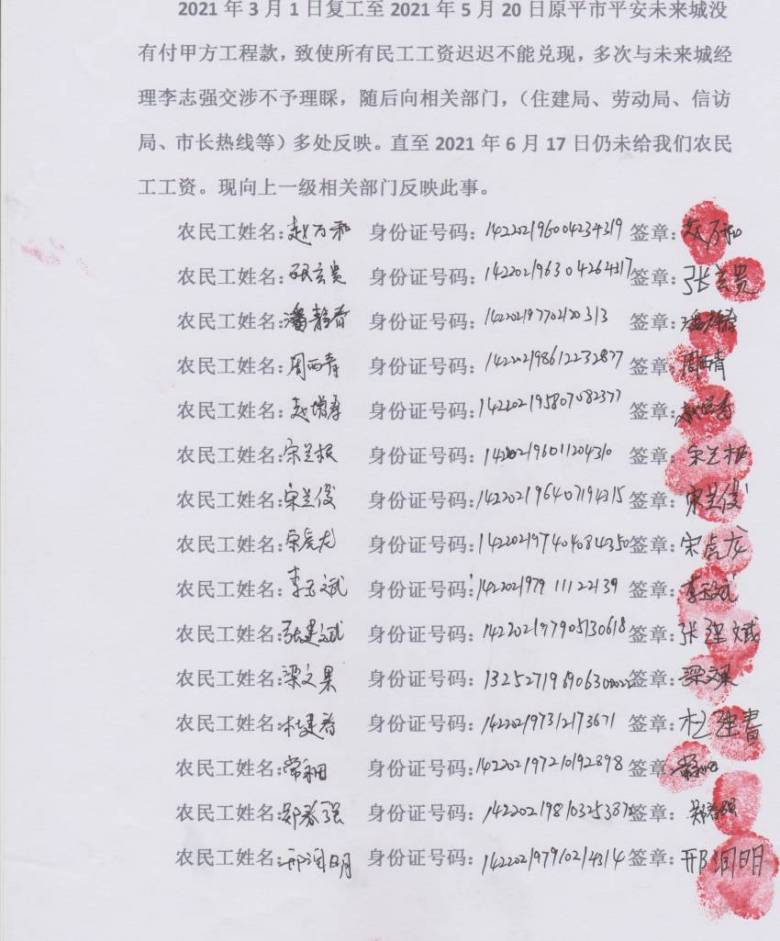 2021年3月1日复工至2021年5月20日原平市平安未来城没
有付甲方工程款，致使所有民工工资迟迟不能兑现，多次与未来城经
理李志强交涉不予理睬，随后向相关部门，（住建局、劳动局、信访
局、市长热线等）多处反映。直至2021年6月17日仍未给我们农民
工工资。现向上一级相关部门反映此事。
农民工姓名：赵万和 身份证号码：142202196004234319 签章：赵万和
农民工姓名：张玄贵 身份证号码： 签章：张玄贵
农民工姓名：潘静香 身份证号码： 签章：
农民工姓名：周丙青 身份证号码：142202198612232877 签章：周丙青
农民工姓名：赵增寿 身份证号码：142202195807082377 签章：
农民工姓名：宋兰根 身份证号码：142202196011204310 签章：宋兰根
农民工姓名：宋兰俊 身份证号码：142202196407194315 签章：宋兰俊
农民工姓名：宋虎龙 身份证号码：142202197404084350 签章：宋虎龙
农民工姓名：李玉斌 身份证号码：142202197911122139 签章：李玉斌
农民工姓名：张建斌 身份证号码：142202197905130618 签章：张建斌
农民工姓名：梁文果 身份证号码： 签章：梁文果
农民工姓名：杜建春 身份证号码：142202197312173671 签章：杜建春
农民工姓名：常 身份证号码：142202197210192898 签章：
农民工姓名：郑春强 身份证号码： 签章：郑春强
农民工姓名：邢润明 身份证号码：142202197910214314 签章：邢润明